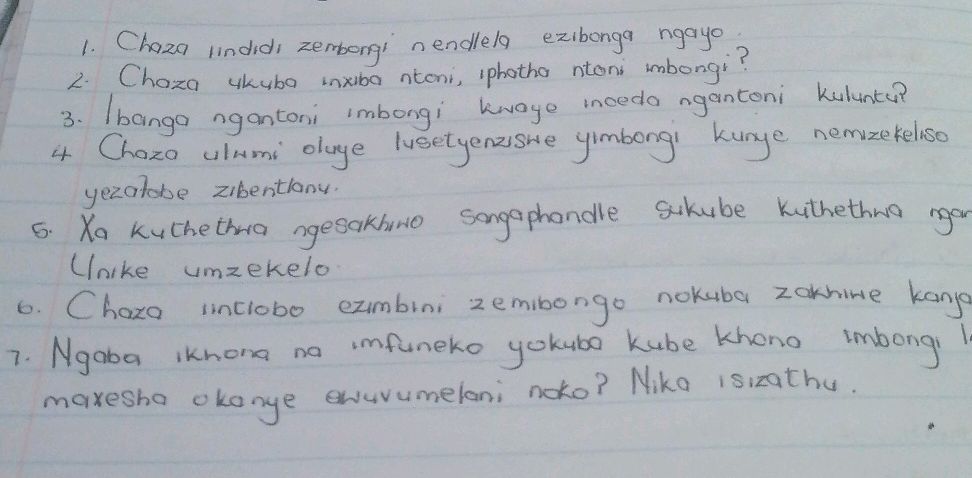 1. Chaza iindidi zembongi nendlela ezibonga ngayo.
2. Chaza ukuba inxiba ntoni, iphatha ntoni imbongi?
3. Ibonga ngantoni imbongi kwaye inceda ngantoni kuluntu?
4 Chaza ulwimi oluye lusetyenziswe yimbongi kunye nemizekeliso
yezafobe zibentlanu.
5. Xa kuthethwa ngesakhiwo sangaphandle sukube kuthethwa
Unike umzekelo.
6. Chaza iintlobo ezimbini zemibongo nokuba zakhiwe
7. Ngaba ikhona na imfuneko yokuba kube khona imbongi
maxesha okanye awuvumelani noko? Nika isizathu.